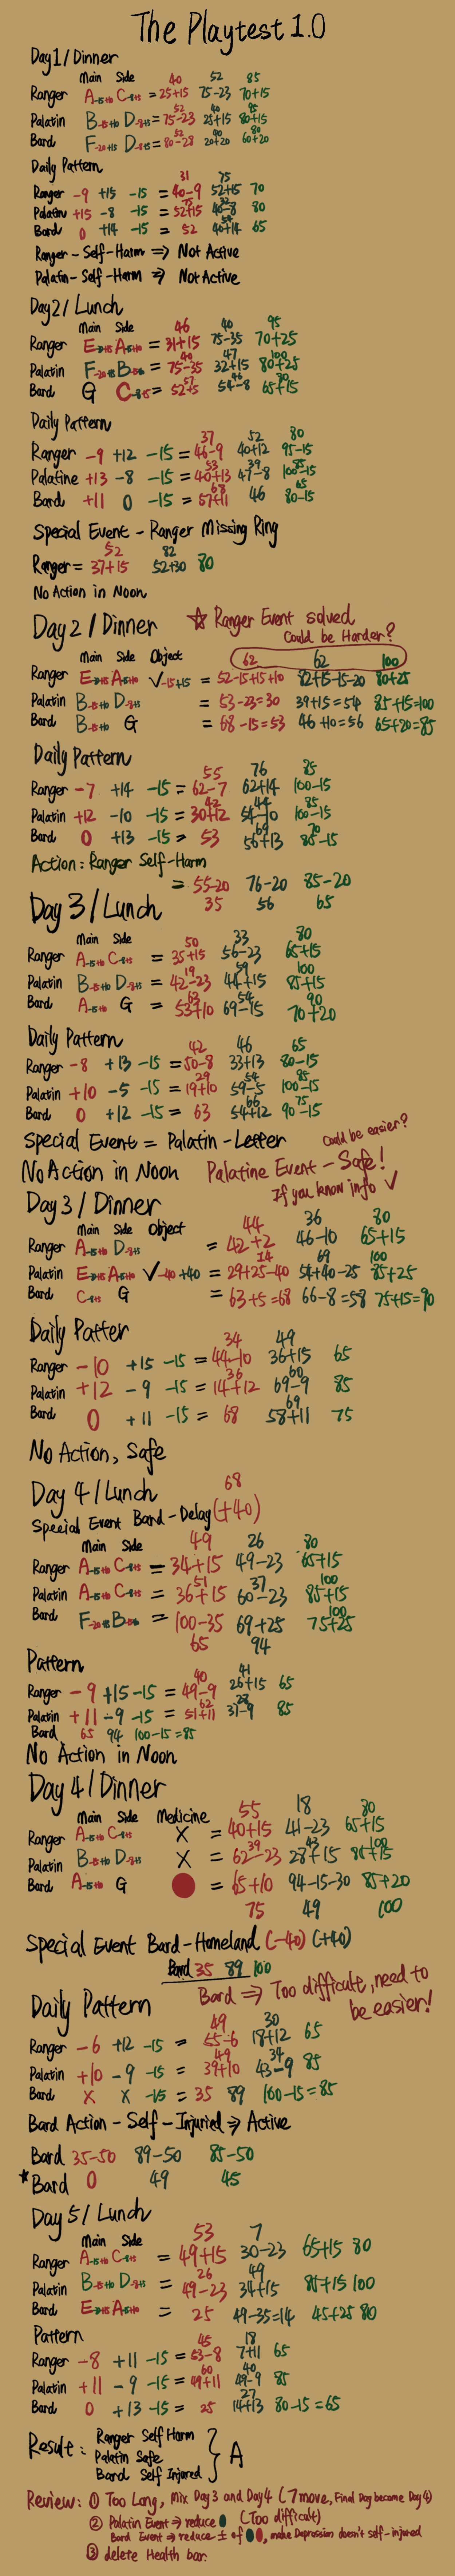 The Playtest 1.0
Day1 / Dinner
Main Side 40 52 85
Ranger A-15+10 C-8+5 = 25+15 75-23 70+15
52 40 95
Palatin B-15+10 D-8+5 = 75-23 25+15 80+15
52 40 80
Bard F-20+15 D-8+5 = 80-28 20+20 60+20
Daily Pattern
31 75
Ranger -9 +15 -15 = 40-9 52+15 70
Palatin +15 -8 -15 = 52+15 40-8 80
54
Bard 0 +14 -15 = 52 40+14 65
Ranger-Self-Harm ⇒ Not Active
Palatin-Self-Harm ⇒ Not Active
Day2/ Lunch
Main Side 46 40 95
Ranger E A-15+10 = 31+15 75-35 70+25
40 47 100
Palatin F-20+15 B = 75-35 32+15 80+25
57 46 80
Bard G C-8+5 = 52+5 54-8 65+15
Daily Pattern
37 52 80
Ranger -9 +12 -15 = 46-9 40+12 95-15
53 39 85
Palatine +13 -8 -15 = 40+13 47-8 100-15
68 65
Bard +11 0 -15 = 57+11 46 80-15
Special Event - Ranger Missing Ring
52 82
Ranger = 37+15 52+30 80
No Action in Noon
Day2 / Dinner ☆ Ranger Event solved
Could be Harder?
Main Side Object 62 62 100
Ranger E A-15+10 √-15+15 = 52-15+15+10 82+15-15-20 80+25
Palatin B-15+10 D-8+5 = 53-23=30 39+15=54 85+15=100
Bard B-15+10 G = 68-15=53 46+10=56 65+20=85
Daily Pattern
55 76 85
Ranger -7 +14 -15 = 62-7 62+14 100-15
42 44 85
Palatin +12 -10 -15 = 30+12 54-10 100-15
69 70
Bard 0 +13 -15 = 53 56+13 85-15
Action: Ranger Self-Harm
= 55-20 76-20 85-20
35 56 65
Day 3 / Lunch
Main Side 50 33 80
Ranger A-15+10 C-8+5 = 35+15 56-23 65+15
19 59 100
Palatin B-15+10 D-8+5 = 42-23 44+15 85+15
63 54 90
Bard A-15+10 G = 53+10 69-15 70+20
Daily Pattern
42 46 65
Ranger -8 +13 -15 = 50-8 33+13 80-15
29 54 85
Palatin +10 -5 -15 = 19+10 59-5 100-15
66 75
Bard 0 +12 -15 = 63 54+12 90-15
Special Event = Palatin-Letter Could be easier?
No Action in Noon Palatine Event-Safe!
If you know info √
Day3 / Dinner
Main Side Object 44 36 80
Ranger A-15+10 D-8+5 = 42+2 46-10 65+15
14 69 100
Palatin E A-15+10 √-40+40 = 29+25-40 54+40-25 85+25
Bard C-8+5 G = 63+5=68 66-8=58 75+15=90
Daily Patter
34 49
Ranger -10 +15 -15 = 44-10 36+15 65
36 60
Palatin +12 -9 -15 = 14+12 69-9 85
69
Bard 0 +11 -15 = 68 58+11 75
No Action, Safe
Day 4 / Lunch 68
Special Event Bard-Delay (+40)
Main Side 49 26 80
Ranger A-15+10 C-8+5 = 34+15 49-23 65+15
51 37 100
Palatin A-15+10 C-8+5 = 36+15 60-23 85+15
100
Bard F-20+15 B = 100-35 69+25 75+25
65 94
Pattern
40 41
Ranger -9 +15 -15 = 49-9 26+15 65
62 28
Palatin +11 -9 -15 = 51+11 37-9 85
Bard 65 94 100-15=85
No Action in Noon
Day4/Dinner
Main Side Medicine 55 18 80
Ranger A-15+10 C-8+5 X = 40+15 41-23 65+15
39 43 100
Palatin B-15+10 D-8+5 X = 62-23 28+15 85+15
Bard A-15+10 G = 65+10 94-15-30 85+20
75 49 100
Special Event Bard-Homeland (-40) (+40)
Bard 35 89 100
Bard ⇒ Too difficult, need to
be easier!
Daily Pattern
49 30
Ranger -6 +12 -15 = 55-6 18+12 65
49 34
Palatin +10 -9 -15 = 39+10 43-9 85
Bard X X -15 = 35 89 100-15=85
Bard Action - Self-Injured ⇒ Active
Bard 35-50 89-50 85-50
★Bard 0 49 45
Day 5/ Lunch
Main Side 53 7
Ranger A-15+10 C-8+5 = 49+15 30-23 65+15 80
26 49
Palatin B-15+10 D-8+5 = 49-23 34+15 85+15 100
Bard E A-15+10 = 25 49-35=14 45+25 80
Pattern
45 18
Ranger -8 +11 -15 = 53-8 7+11 65
60 40
Palatin +11 -9 -15 = 49+11 49-9 85
27
Bard 0 +13 -15 = 25 14+13 80-15=65
Result: Ranger Self Harm
Palatin Safe
Bard Self Injured } A
Review: ① Too Long, Mix Day3 and Day4 (7 move, Final Day become Day4)
② Palatin Event ⇒ reduce (Too difficult)
Bard Event ⇒ reduce ± of , make Depression doesn't self-injured
③ delete Health bar.